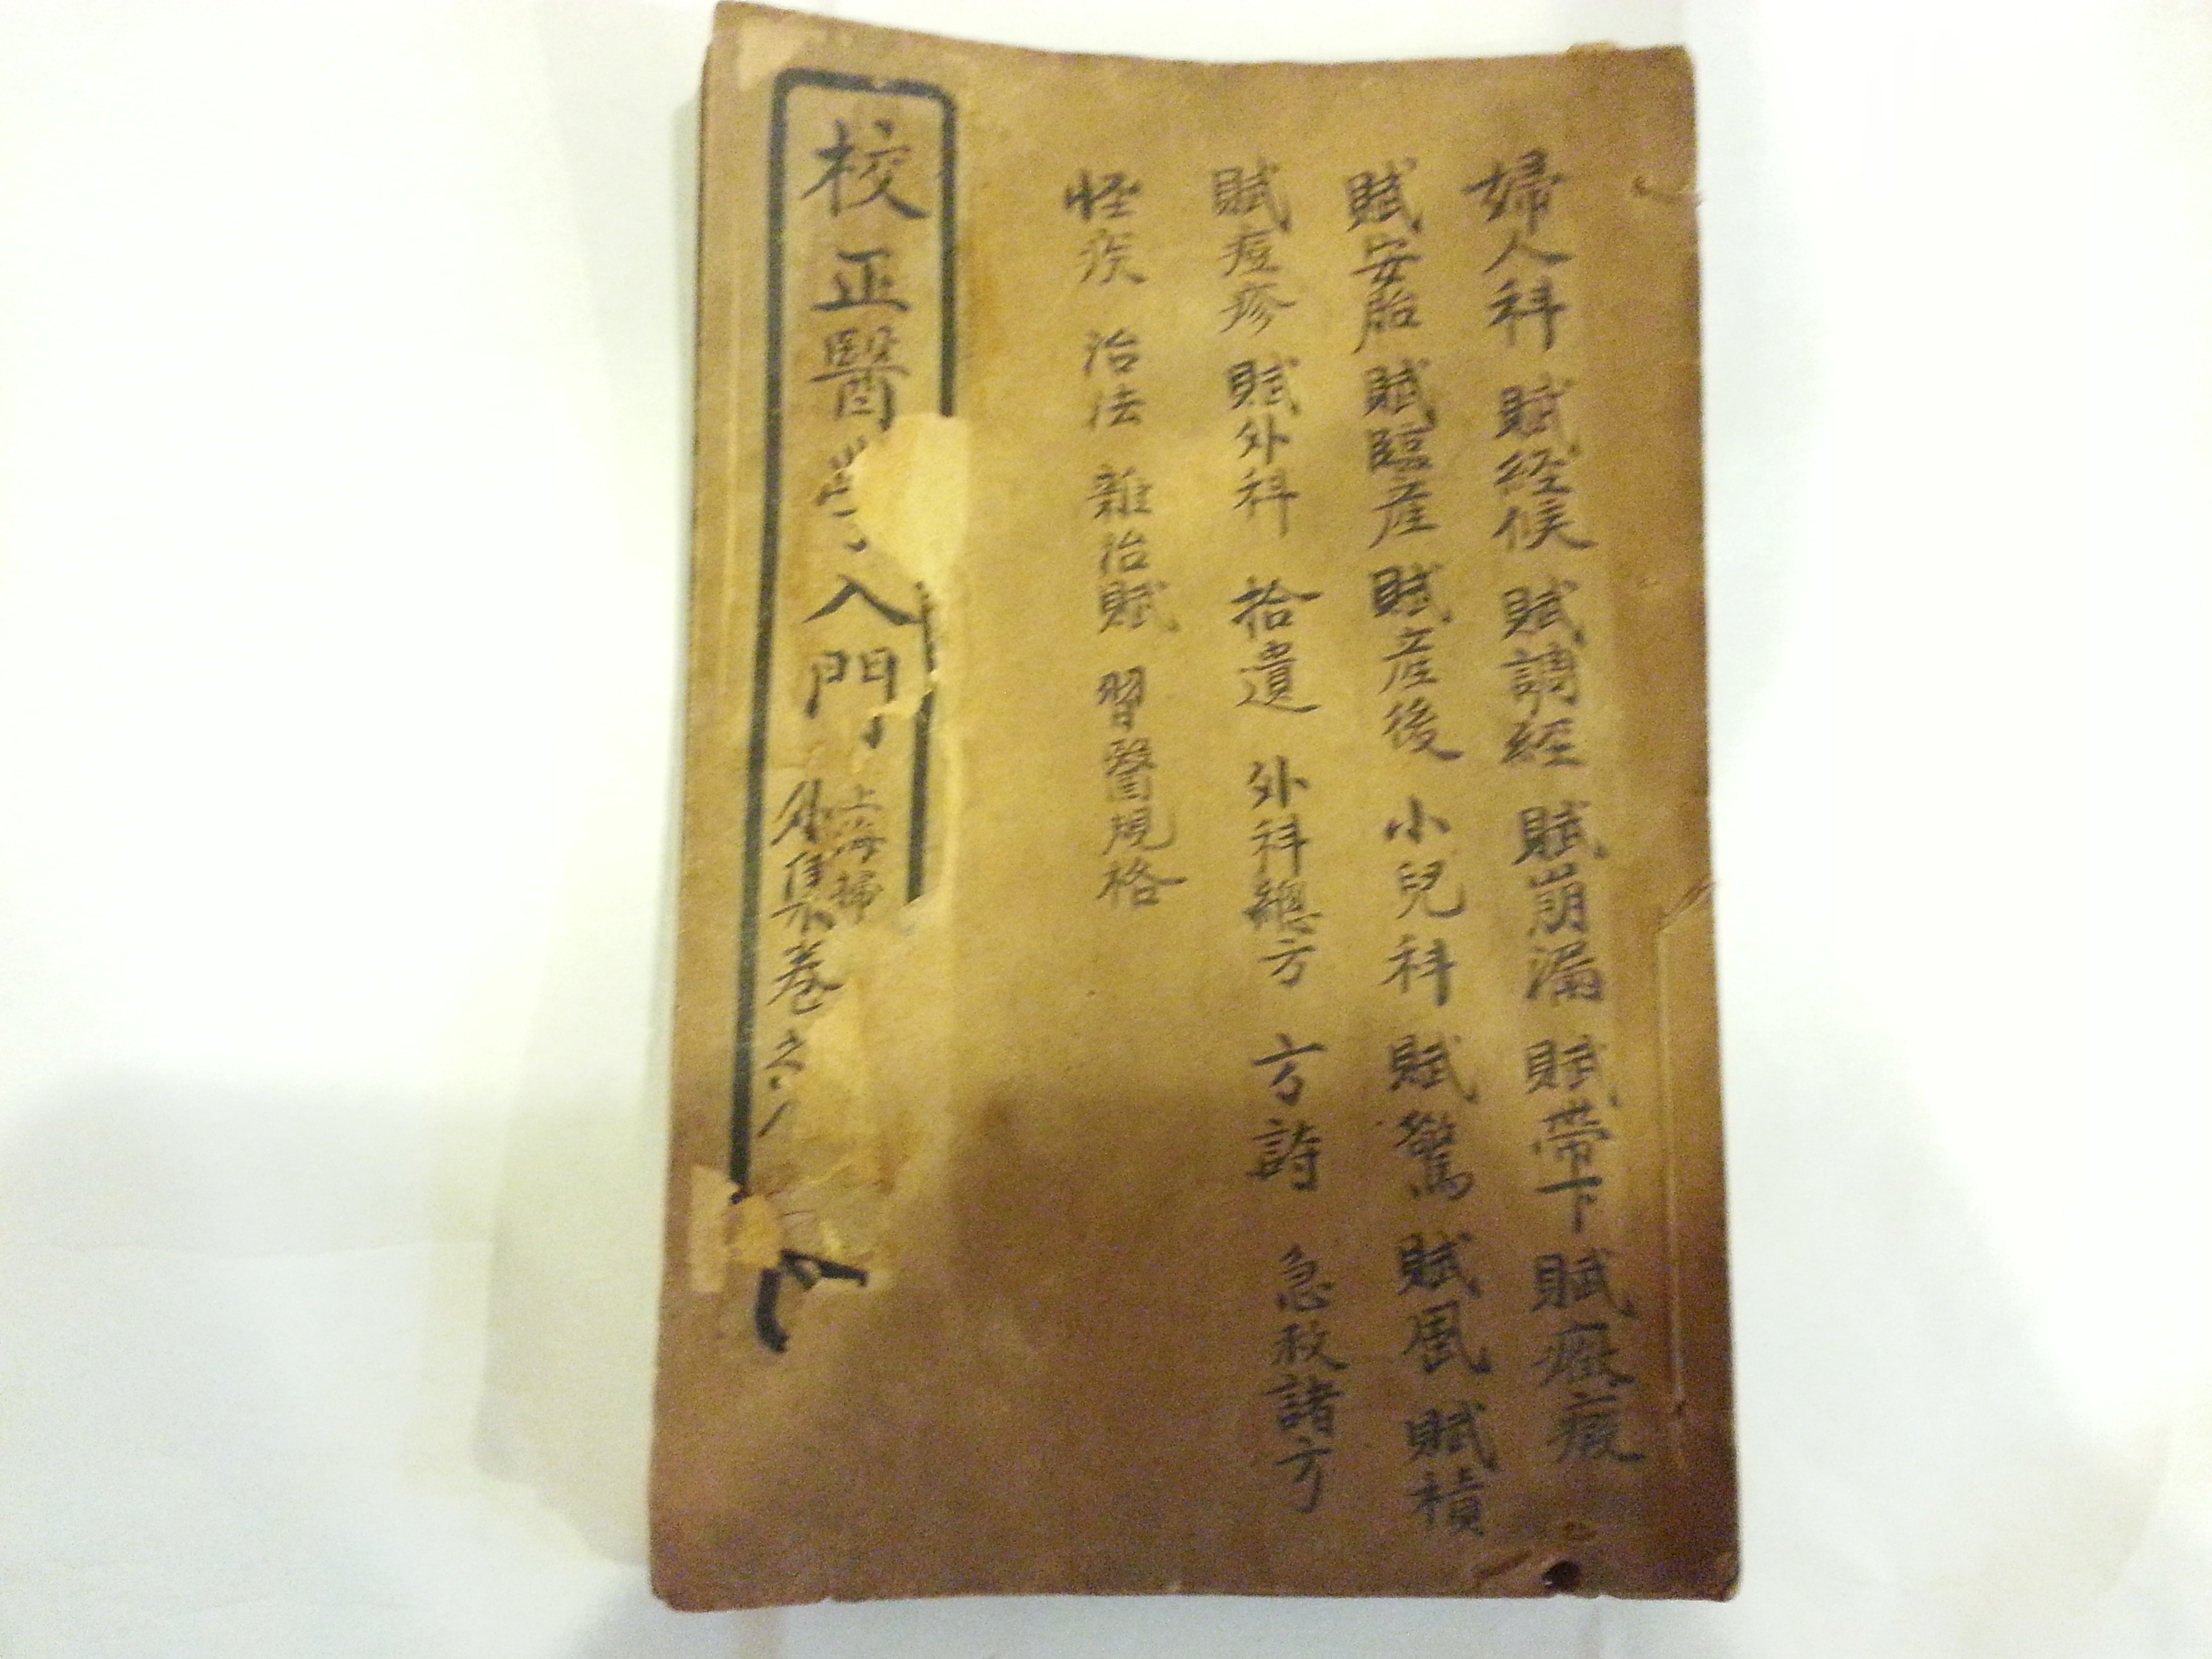 婦人科 賦経候 賦調経 賦崩漏 賦帶下 賦癥瘕
賦安胎 賦臨産 賦産後 小兒科 賦驚 賦風 賦積
賦痘疹 賦外科 拾遺 外科總方 方詩 急救諸方
怪疾 治法 雜治賦 習醫規格
校正醫學入門
上海掃
外集卷之